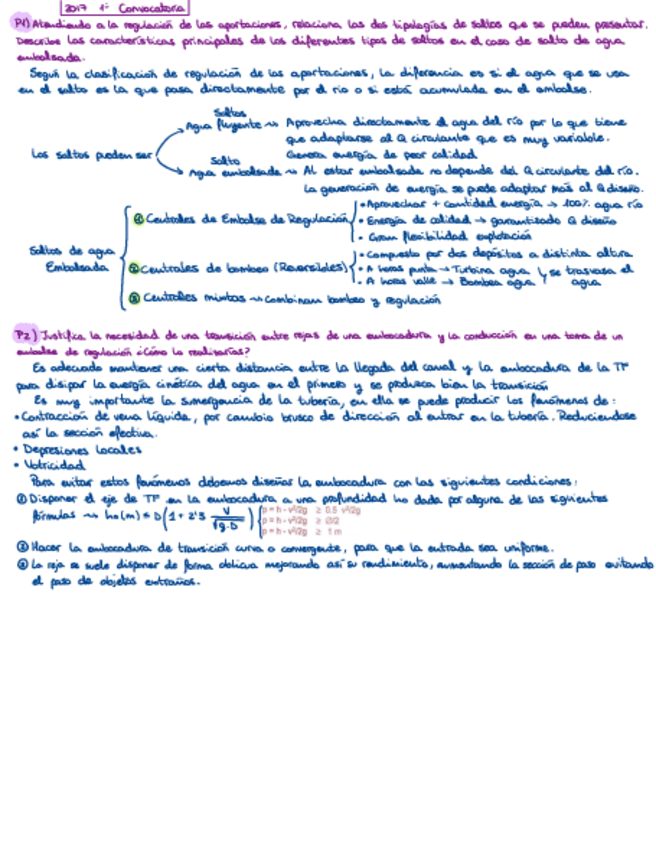 2017 1ª Convocatoria
P1) Atendiendo a la regulación de las aportaciones, relaciona las dos tipologías de saltos que se pueden presentar.
Describe las características principales de los diferentes tipos de saltos en el caso de salto de agua
embalsada.
Según la clasificación de regulación de las aportaciones, la diferencia es si el agua que se usa
en el salto es la que pasa directamente por el río o si está acumulada en el embalse.
Los saltos pueden ser
Saltos
Agua fluyente → Aprovecha directamente el agua del río por lo que tiene
que adaptarse al Q circulante que es muy variable.
Genera energía de peor calidad
Salto
Agua embalsada → Al estar embalsada no depende del Q circulante del río.
La generación de energía se puede adaptar más al Q diseño.
Saltos de agua
Embalsada
① Centrales de Embalse de Regulación
• Aprovechar + cantidad energía → 100% agua río
• Energía de calidad → garantizado Q diseño
• Gran flexibilidad explotación
② Centrales de bombeo (Reversibles)
• Compuesto por dos depósitos a distinta altura
• A horas punta → Turbina agua
• A horas valle → Bombea agua
se trasvasa el
agua
③ Centrales mixtas → Combinan bombeo y regulación
P2) Justifica la necesidad de una transición entre rejas de una embocadura y la conducción en una toma de un
embalse de regulación ¿Cómo la realizarías?
Es adecuado mantener una cierta distancia entre la llegada del canal y la embocadura de la TF
para disipar la energía cinética del agua en el primero y se produzca bien la transición
Es muy importante la sumergencia de la tubería, en ella se puede producir los fenómenos de:
• Contracción de vena líquida, por cambio brusco de dirección al entrar en la tubería. Reduciendose
así la sección efectiva.
• Depresiones locales
• Voticidad
Para evitar estos fenómenos debemos diseñar la embocadura con las siguientes condiciones:
① Disponer el eje de TF en la embocadura a una profundidad ho dada por alguna de las siguientes
fórmulas → ho(m) = D(1 + 2'3 V/√g·D)
p = h - v²/2g ≥ 0.5 v²/2g
p = h - v²/2g ≥ D/2
p = h - v²/2g ≥ 1 m
② Hacer la embocadura de transición curva o convergente, para que la entrada sea uniforme.
③ La reja se suele disponer de forma oblicua mejorando así su rendimiento, aumentando la sección de paso evitando
el paso de objetos extraños.